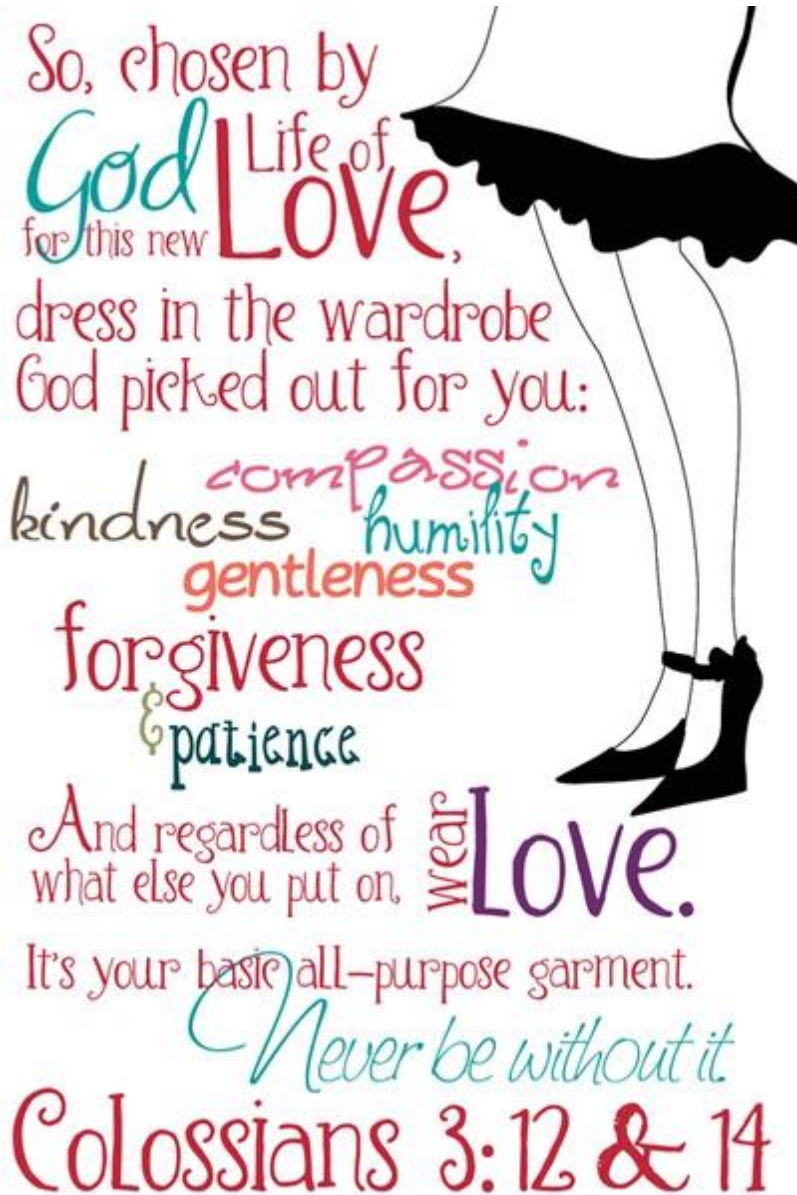 So, chosen by
God
for this new
Life of
Love,
dress in the wardrobe
God picked out for you:
compassion
kindness
humility
gentleness
forgiveness
& patience
And regardless of
what else you put on,
wear Love.
It's your basic all-purpose garment.
Never be without it.
Colossians 3:12 & 14